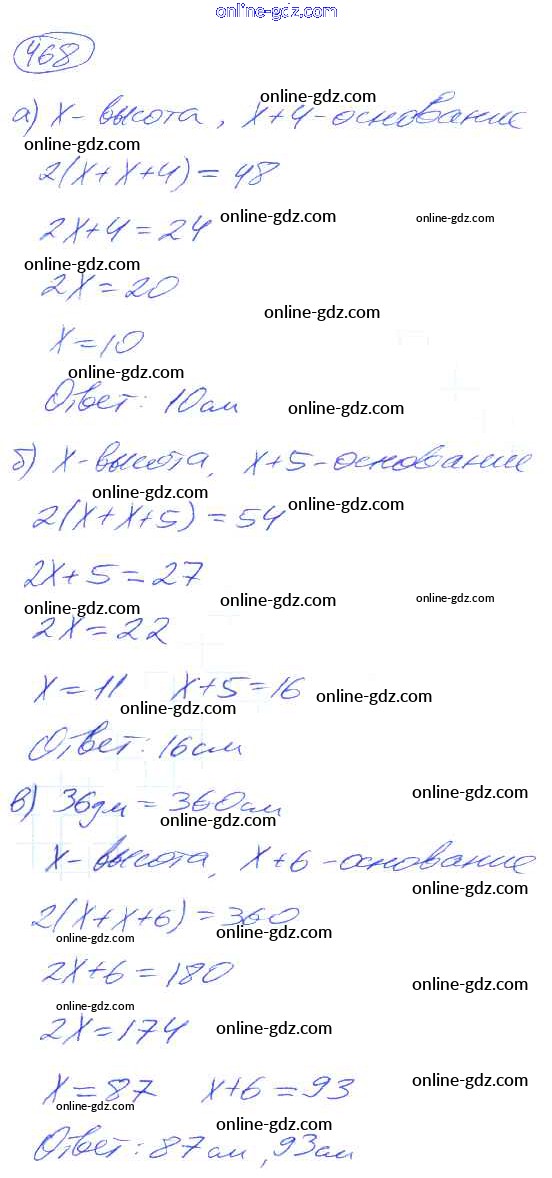 online-gdz.com
468
а) x - высота, x+4 - основание
online-gdz.com
online-gdz.com
2(x+x+4) = 48
2x+4 = 24
online-gdz.com
online-gdz.com
online-gdz.com
2x = 20
online-gdz.com
x = 10
online-gdz.com
Ответ: 10см
online-gdz.com
б) x - высота, x+5 - основание
online-gdz.com
online-gdz.com
2(x+x+5) = 54
2x+5 = 27
online-gdz.com
online-gdz.com
online-gdz.com
2x = 22
x = 11 x+5 = 16
online-gdz.com
online-gdz.com
Ответ: 16см
online-gdz.com
в) 36дм = 360см
online-gdz.com
x - высота, x+6 - основание
online-gdz.com
2(x+x+6) = 360
online-gdz.com
online-gdz.com
2x+6 = 180
online-gdz.com
online-gdz.com
2x = 174
online-gdz.com
x = 87 x+6 = 93
online-gdz.com
online-gdz.com
online-gdz.com
Ответ: 87см, 93см